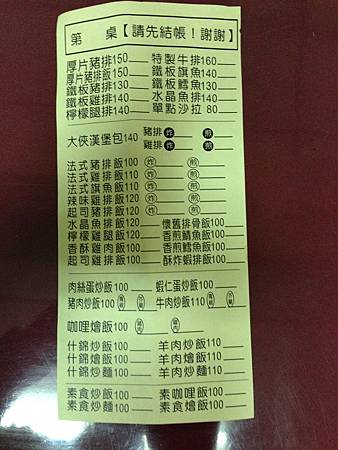 第 桌【請先結帳!謝謝】
厚片豬排150 特製牛排160
厚片豬排飯150 鐵板旗魚140
鐵板豬排130 鐵板鱈魚130
鐵板雞排140 水晶魚排140
檸檬腿排140 單點沙拉 80
大俠漢堡包140 豬排 炸 煎
雞排 炸 煎
法式豬排飯100 炸 煎
法式雞排飯110 炸 煎
法式旗魚飯110 炸 煎
辣味雞排飯120 炸 煎
起司豬排飯120 炸 煎
水晶魚排飯120 懷舊排骨飯100
檸檬雞腿飯120 香煎鯖魚飯100
香酥雞肉飯100 香煎鱈魚飯100
起司雞排飯120 酥炸蝦排飯100
肉絲蛋炒飯100 蝦仁蛋炒飯100
豬肉炒飯100 牛肉炒飯110
咖哩燴飯100
什錦炒飯100 羊肉炒飯110
什錦燴飯100 羊肉燴飯110
什錦炒麵100 羊肉炒麵110
素食炒飯100 素咖哩飯100
素食炒麵100 素食燴飯100